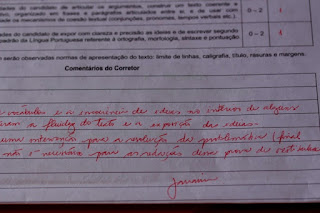 idades do candidato de articular os argumentos, construir um texto coerente e
objetivo, organizado em frases e parágrafos articulados entre si, e de usar com
mecanismos de coesão textual (conjunções, pronomes, tempos verbais etc.).
0 – 2
1
ades do candidato de expor com clareza e precisão as ideias e de escrever segundo
padrão da Língua Portuguesa referente à ortografia, morfologia, sintaxe e pontuação
0 – 2
1
serão observadas normas de apresentação do texto: limite de linhas, caligrafia, título, rasuras e margens.
Comentários do Corretor
e a de ideias no interior de alguns
a fluidez do texto e a exposição das ideias.
uma intervenção para a resolução da problemática (final
não é necessária para as redações dessa prova de vestibular